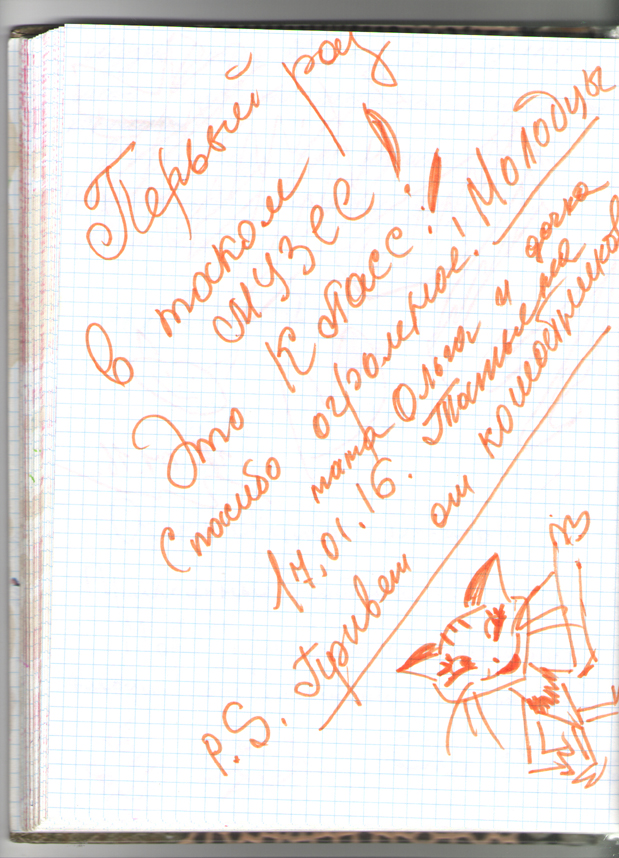 Первый раз
в таком
музее!
Это класс!!
Спасибо огромное! Молодцы
мама Ольга и дочка
17.01.16. Татьяна
P.S. Привет от кошатников